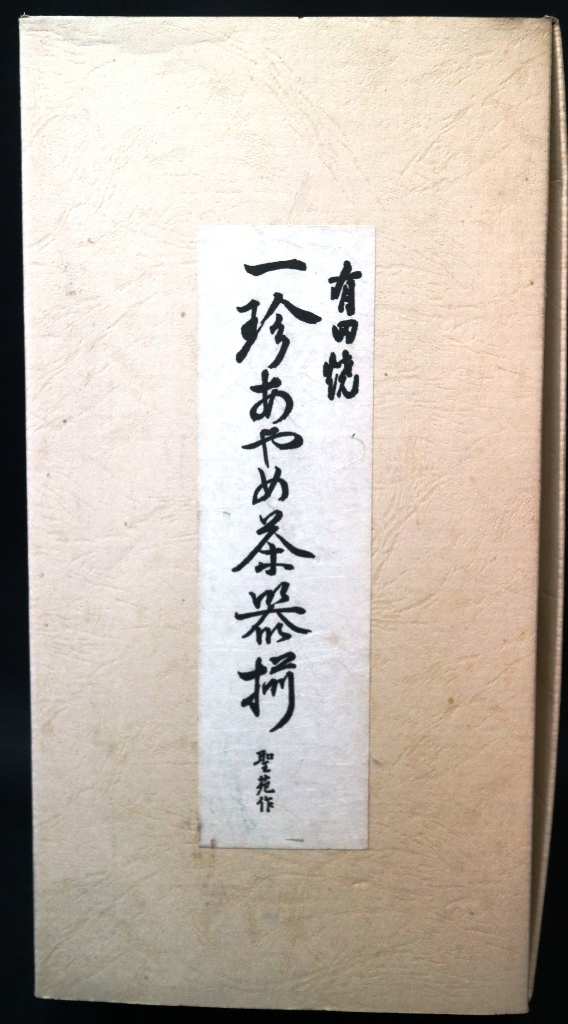 有田焼
一珍あやめ茶器揃
聖苑作